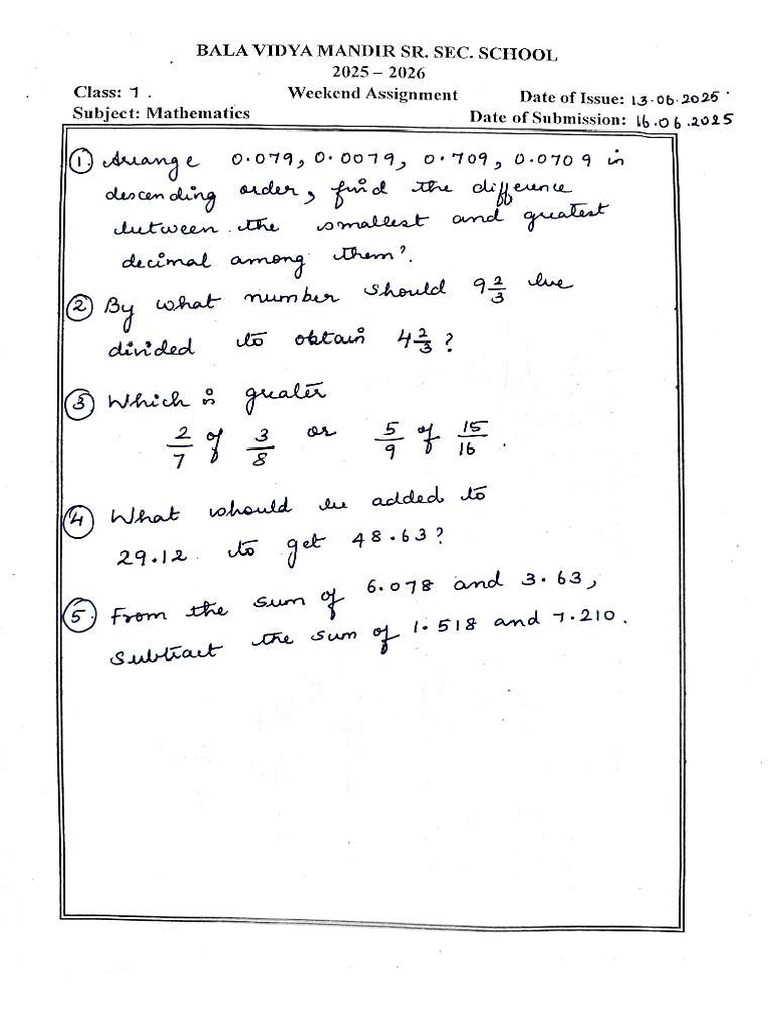 BALA VIDYA MANDIR SR. SEC. SCHOOL
2025 – 2026
Class: 7. Weekend Assignment Date of Issue: 13.06.2025
Subject: Mathematics Date of Submission: 16.06.2025
① Arrange 0.079, 0.0079, 0.709, 0.0709 in
descending order, find the difference
between the smallest and greatest
decimal among them?
② By what number should 9 2/3 be
divided to obtain 4 2/3?
③ Which is greater
2/7 of 3/8 or 5/9 of 15/16.
④ What should be added to
29.12 to get 48.63?
⑤ From the sum of 6.078 and 3.63,
subtract the sum of 1.518 and 7.210.